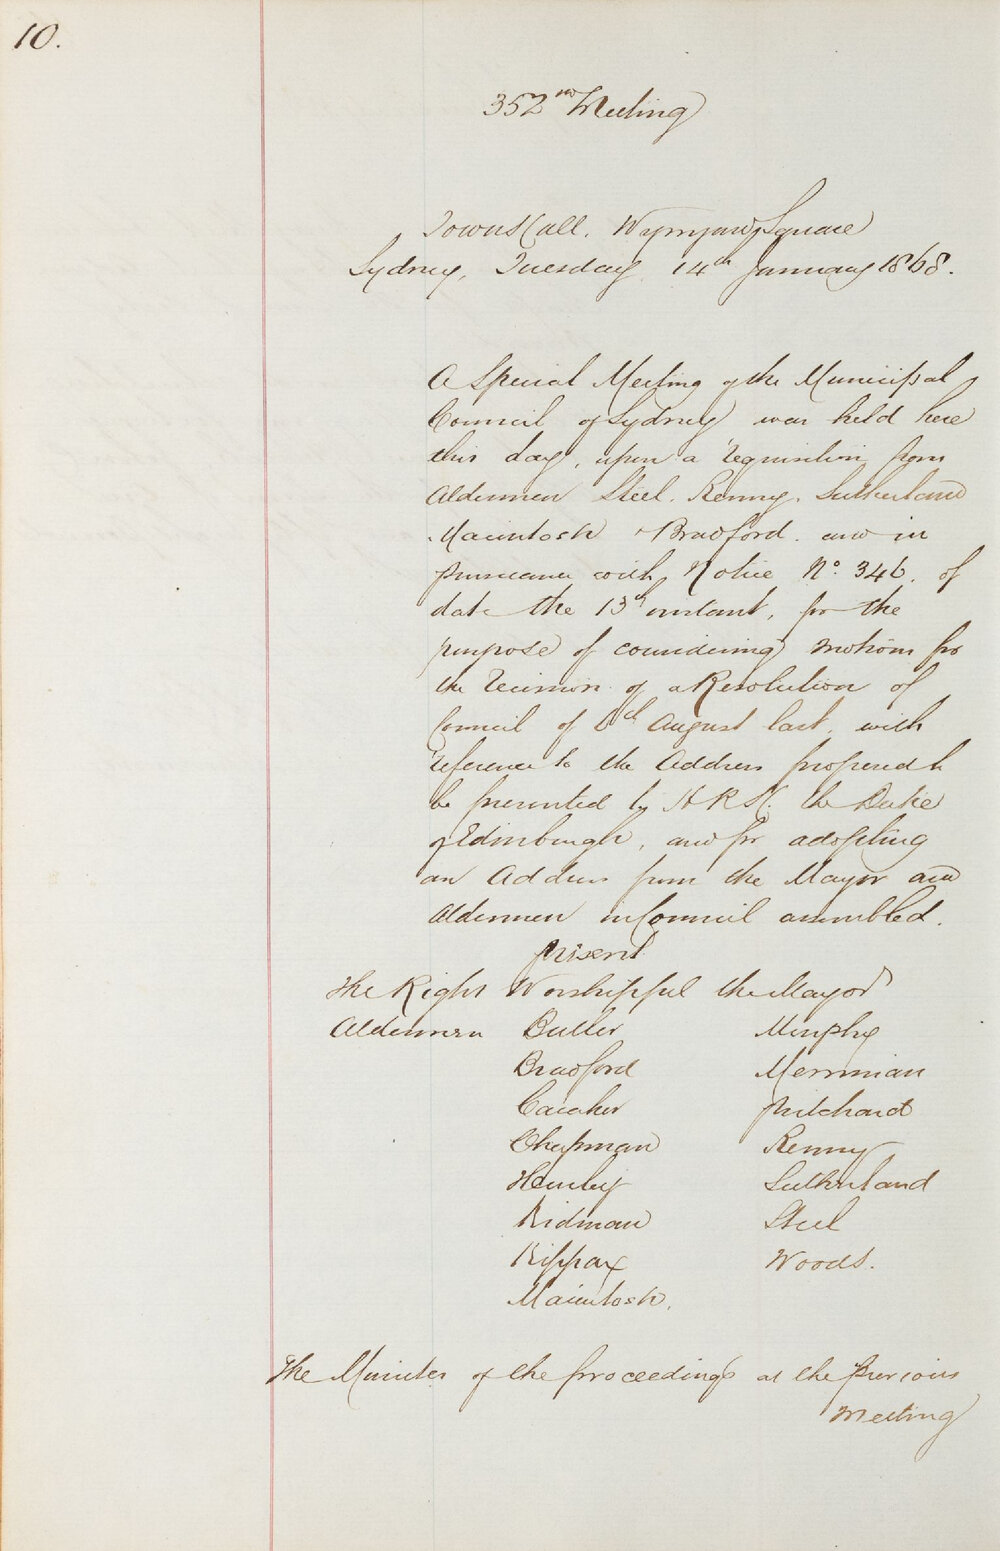 10.
352nd Meeting
Town Hall, Wynyard Square
Sydney, Tuesday 14th January 1868.
A Special Meeting of the Municipal
Council of Sydney was held here
this day, upon a requisition from
Aldermen Steel, Renny, Sutherland
Macintosh & Bradford and in
pursuance with Notice No. 346. of
date the 13th instant, for the
purpose of considering motions for
the recision of a Resolution of
Council of 6th August last, with
reference to the Address proposed to
be presented to H.R.H. the Duke
of Edinburgh, and for adopting
an Address from the Mayor and
Aldermen in Council assembled.
Present
The Right Worshipful the Mayor
Aldermen Butler Murphy
Bradford Merriman
Caraher Pritchard
Chapman Renny
Hurley Sutherland
Kidman Steel
Kippax Woods.
Macintosh.
The Minutes of the proceedings at the previous
Meeting